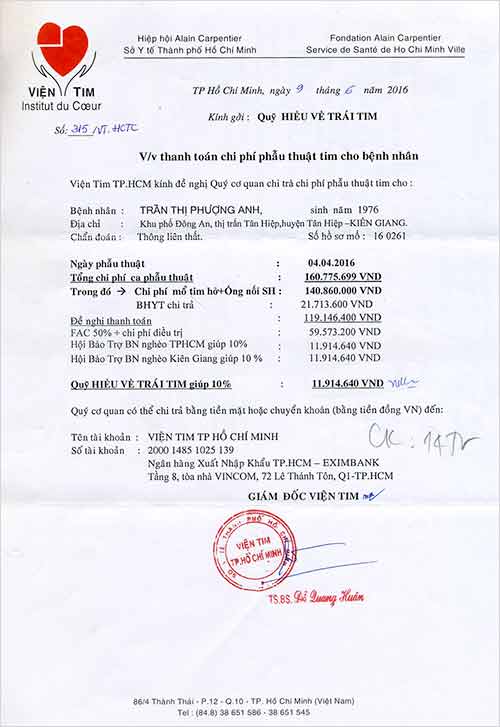 Hiệp hội Alain Carpentier
Sở Y tế Thành phố Hồ Chí Minh
Fondation Alain Carpentier
Service de Santé de Ho Chi Minh Ville
VIỆN TIM
Institut du Cœur
Số: 315/VT.HCTC
TP Hồ Chí Minh, ngày 9 tháng 6 năm 2016
Kính gửi : Quỹ HIỂU VỀ TRÁI TIM
V/v thanh toán chi phí phẫu thuật tim cho bệnh nhân
Viện Tim TP.HCM kính đề nghị Quý cơ quan chi trả chi phí phẫu thuật tim cho :
Bệnh nhân : TRẦN THỊ PHƯỢNG ANH, sinh năm 1976
Địa chỉ : Khu phố Đông An, thị trấn Tân Hiệp,huyện Tân Hiệp –KIÊN GIANG.
Chẩn đoán : Thông liên thất. Số hồ sơ mổ : 16 0261
Ngày phẫu thuật : 04.04.2016
Tổng chi phí ca phẫu thuật : 160.775.699 VND
Trong đó → Chi phí mổ tim hở+Ống nối SH : 140.860.000 VND
BHYT chi trả : 21.713.600 VND
Đề nghị thanh toán : 119.146.400 VND
FAC 50% + chi phí điều trị : 59.573.200 VND
Hội Bảo Trợ BN nghèo TPHCM giúp 10% : 11.914.640 VND
Hội Bảo Trợ BN nghèo Kiên Giang giúp 10 % : 11.914.640 VND
Quỹ HIỂU VỀ TRÁI TIM giúp 10% : 11.914.640 VND
Quý cơ quan có thể chi trả bằng tiền mặt hoặc chuyển khoản (bằng tiền đồng VN) đến:
Tên tài khoản : VIỆN TIM TP HỒ CHÍ MINH
CK : 14Tr
Số tài khoản : 2000 1485 1025 139
Ngân hàng Xuất Nhập Khẩu TP.HCM – EXIMBANK
Tầng 8, tòa nhà VINCOM, 72 Lê Thánh Tôn, Q1-TP.HCM
GIÁM ĐỐC VIỆN TIM
VIỆN TIM
TP.HỒ CHÍ MINH
TS.BS. Đỗ Quang Huân
86/4 Thành Thái - P.12 - Q.10 - TP. Hồ Chí Minh (Việt Nam)
Tel : (84.8) 38 651 586 - 38 651 545